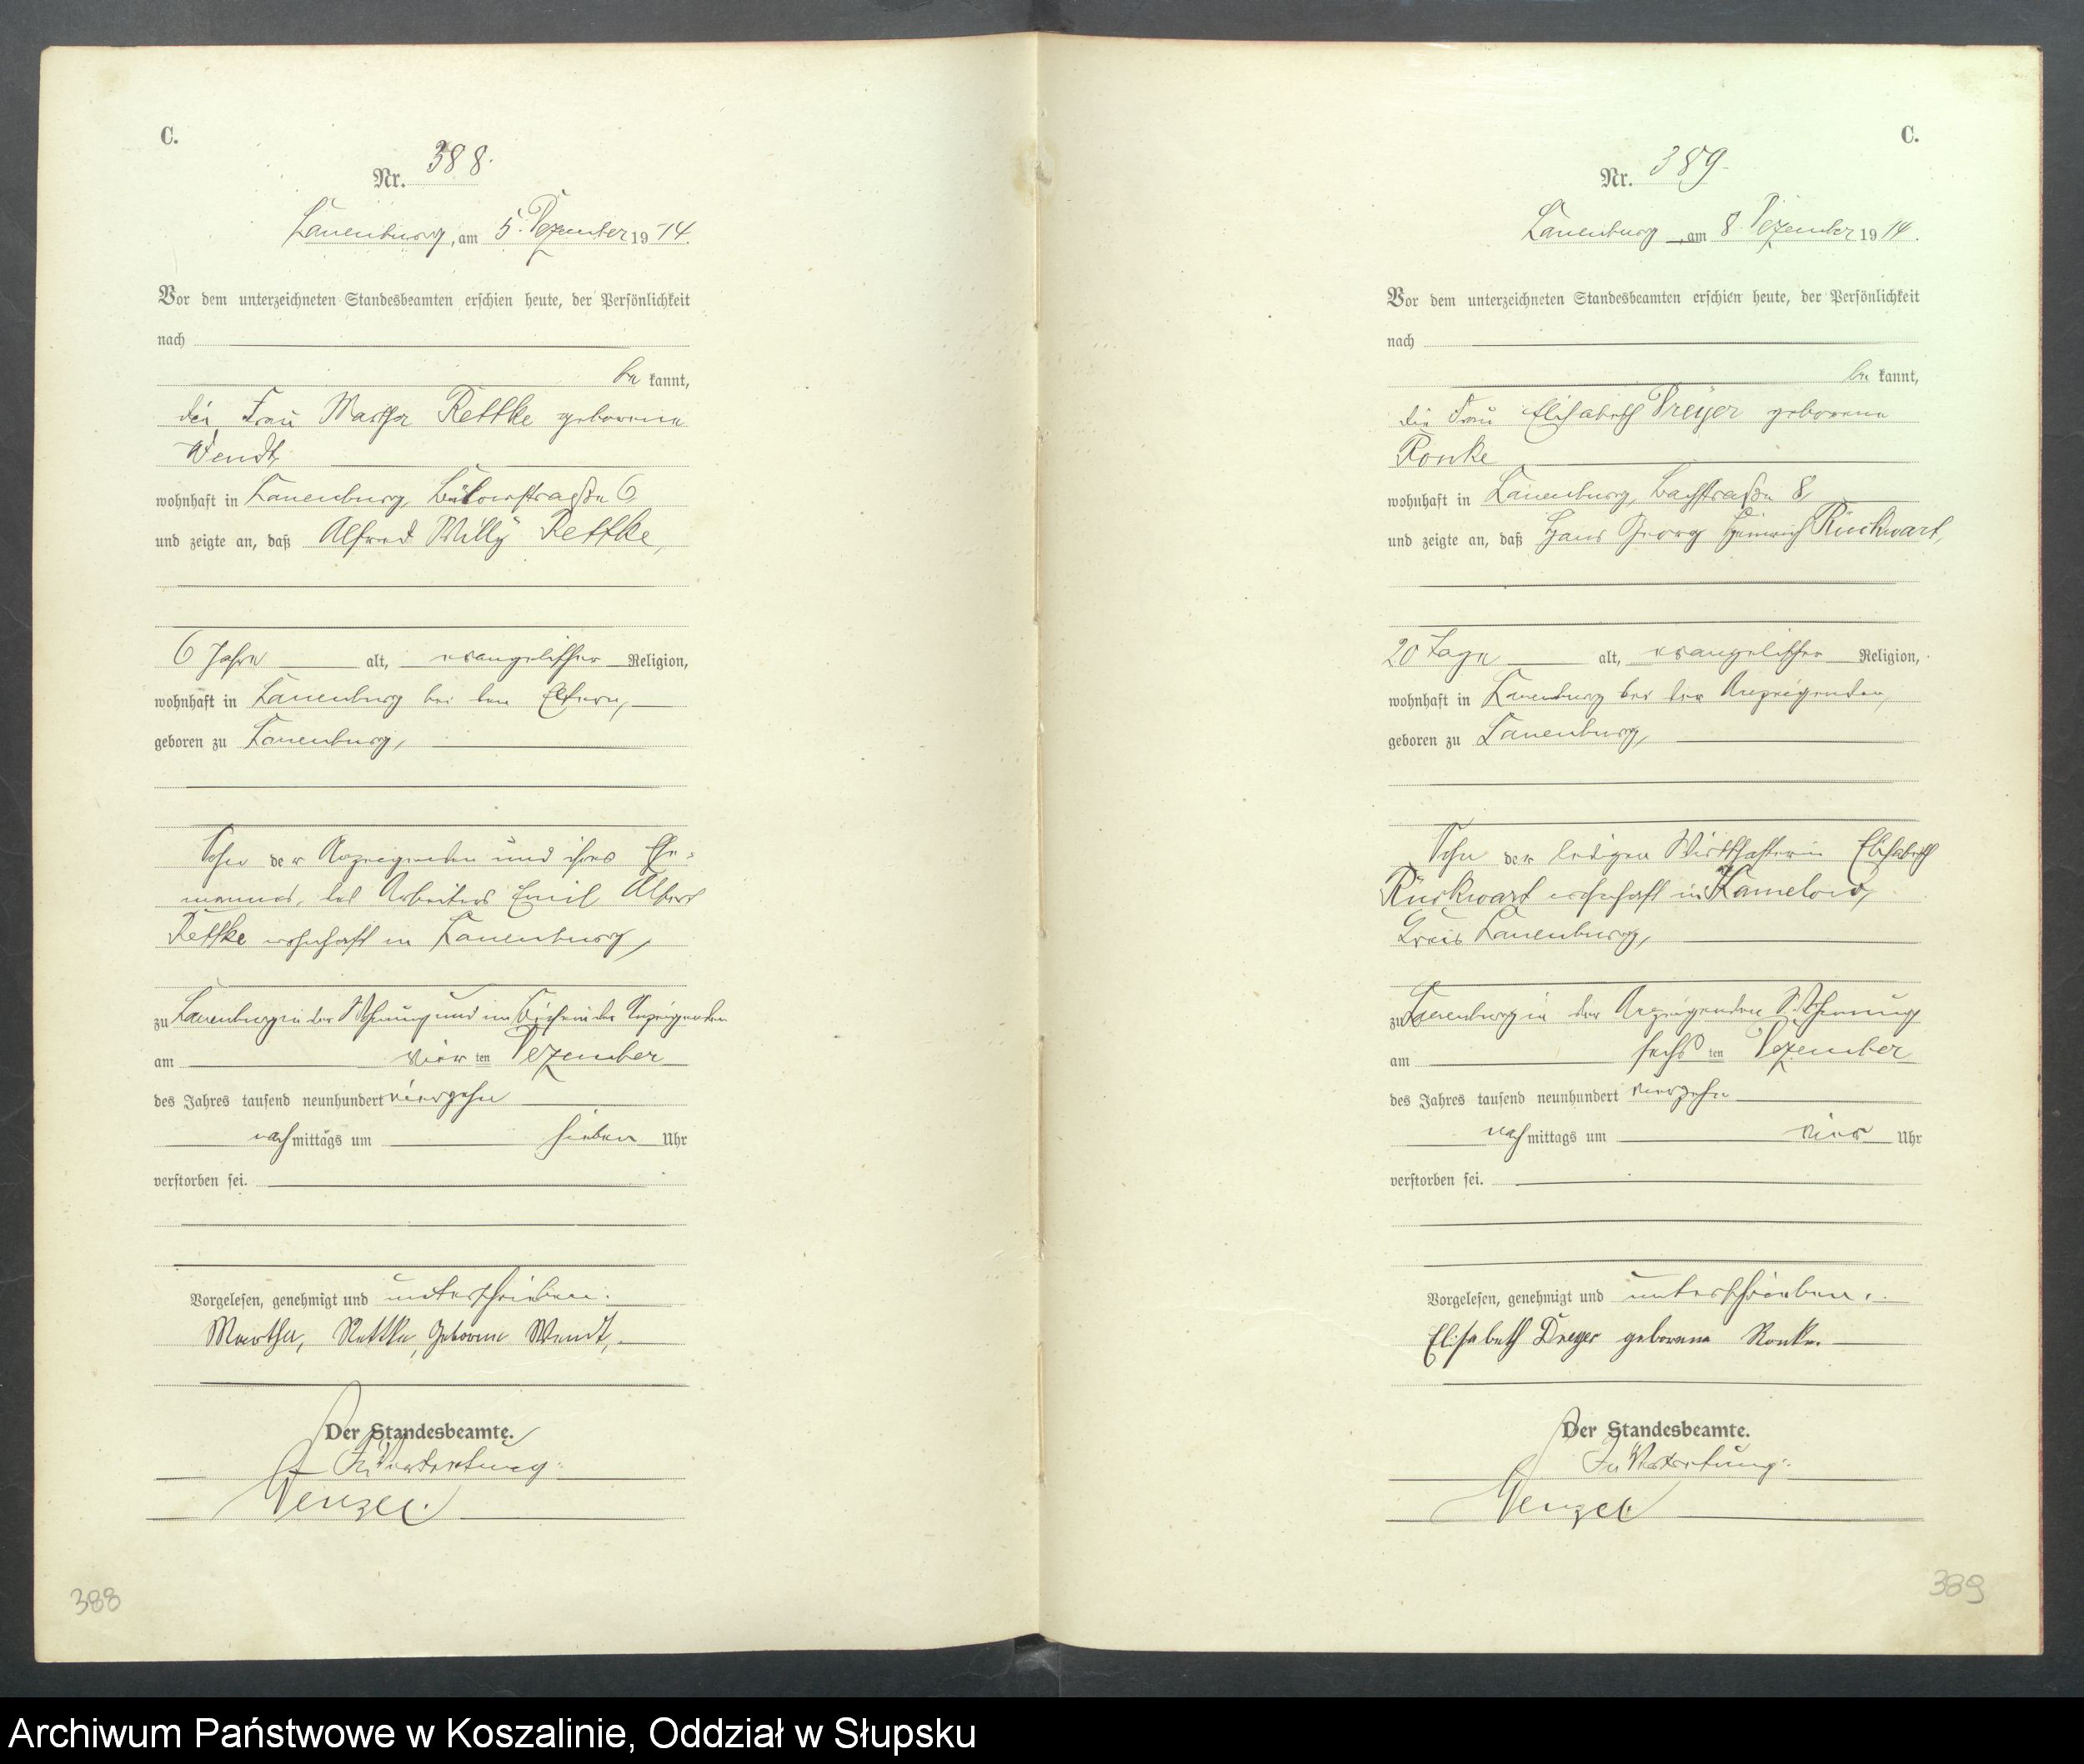 C.
Nr. 388.
Lauenburg, am 5. Dezember 1914.
Vor dem unterzeichneten Standesbeamten erschien heute, der Persönlichkeit
nach
be kannt,
die Frau Martha Rettke geborene
Wendt,
wohnhaft in Lauenburg, Bülowstraße 6,
und zeigte an, daß Alfred Willy Rettke,
6 Jahre alt, evangelischer Religion,
wohnhaft in Lauenburg bei den Eltern,
geboren zu Lauenburg,
Sohn der Anzeigenden und ihres Ehe-
mannes, des Arbeiters Emil Albert
Rettke wohnhaft in Lauenburg,
zu Lauenburg in der Wohnung und im Beisein der Anzeigenden
am vier ten Dezember
des Jahres tausend neunhundert vierzehn
nach mittags um sieben Uhr
verstorben sei.
Vorgelesen, genehmigt und unterschrieben.
Martha, Rettke, geborene Wendt,
Der Standesbeamte.
In Vertretung:
Wenzel.
388
C.
Nr. 389.
Lauenburg, am 8. Dezember 1914.
Vor dem unterzeichneten Standesbeamten erschien heute, der Persönlichkeit
nach
be kannt,
die Frau Elisabeth Dreyer geborene
Ronke
wohnhaft in Lauenburg, Bachstraße 8,
und zeigte an, daß Hans Georg Heinrich Rückwart,
20 Tage alt, evangelischer Religion,
wohnhaft in Lauenburg bei der Anzeigenden,
geboren zu Lauenburg,
Sohn der ledigen Wirtschafterin Elisabeth
Rückwart wohnhaft in Kamelow,
Kreis Lauenburg,
zu Lauenburg in der Anzeigenden Wohnung
am sechs ten Dezember
des Jahres tausend neunhundert vierzehn
nach mittags um vier Uhr
verstorben sei.
Vorgelesen, genehmigt und unterschrieben.
Elisabeth Dreyer geborene Ronke.
Der Standesbeamte.
In Vertretung:
Wenzel
389
Archiwum Państwowe w Koszalinie, Oddział w Słupsku